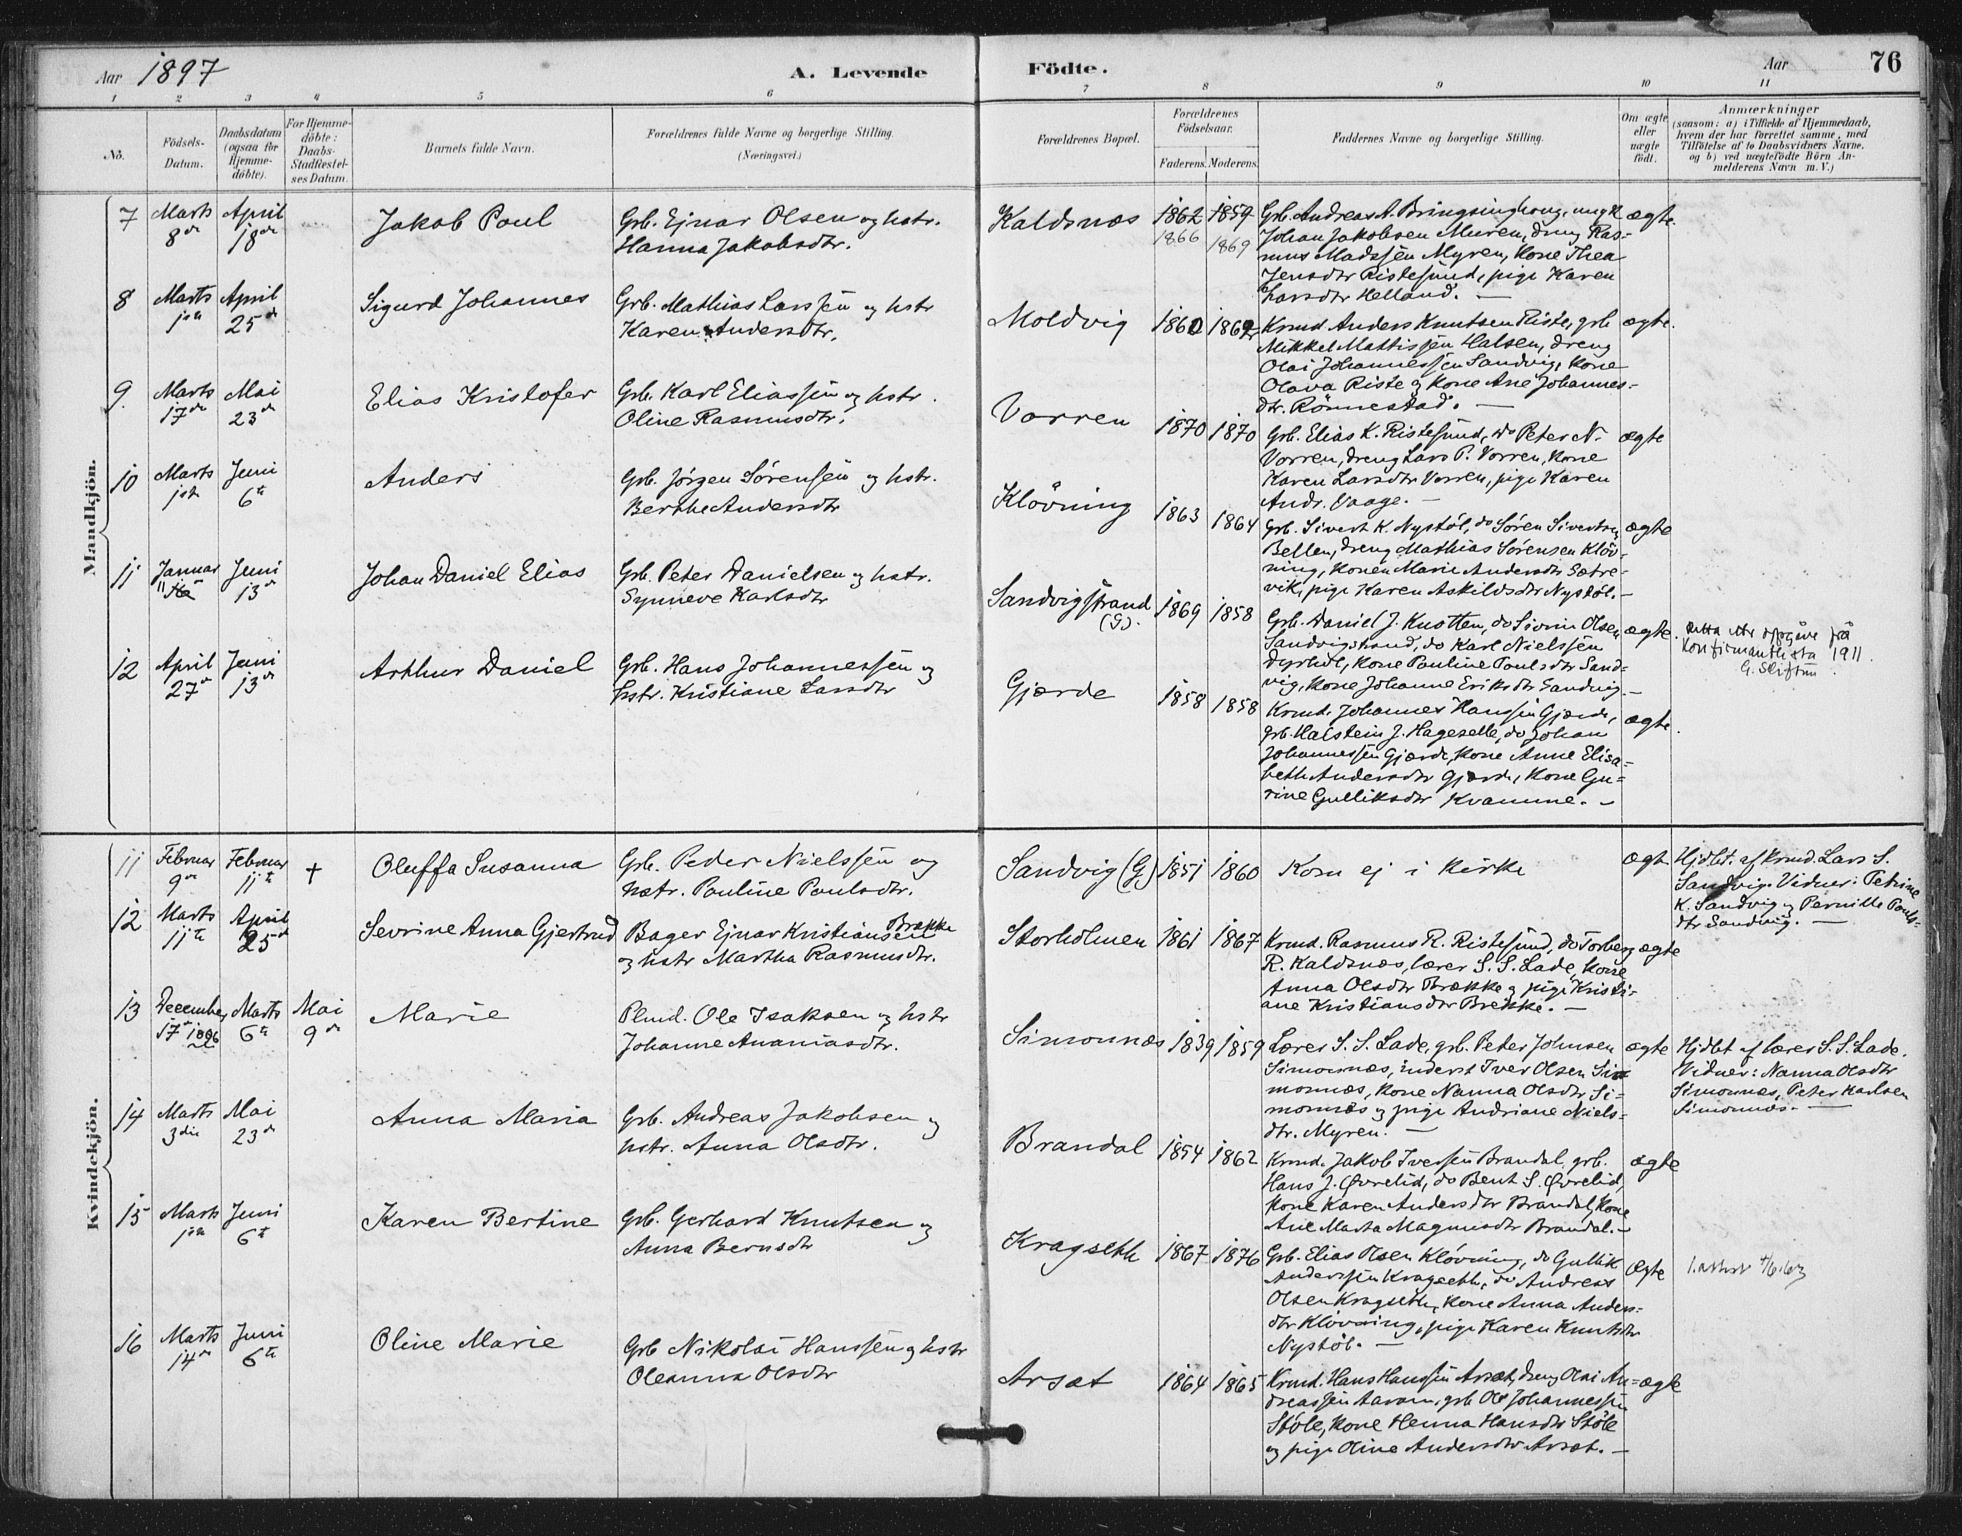 Aar 1897 A. Levende Födte. Aar 76
1 2 3 4 5 6 7 8 9 10 11
No. Födsels-Datum. Daabsdatum (ogsaa for Hjemme-döbte). For Hjemme-döbte: Daabs-Stadfæstel-ses Datum. Barnets fulde Navn. Forældrenes fulde Navne og borgerlige Stilling. (Næringsvei.) Forældrenes Bopæl. Forældrenes Födselsaar. Faderens. Moderens. Faddernes Navne og borgerlige Stilling. Om ægte eller uægte födt. Anmærkninger
(saasom: a) i Tilfælde af Hjemmedaab,
hvem der har forrettet samme, med
Tilföielse af to Daabsvidners Navne,
og b) ved uægtefödte Börn An-
melderens Navn m. V.)
Mandkjön.
7 Marts 8de April 18de Jakob Poul Grb. Ejnar Olsen og hstr.
Hanna Jakobsdtr.
Kaldsnæs 1862 1859 1866 1869
Grb. Andreas A. Bringsinghoug, ungk
Johan Jakobsen Muren, dreng Ras-
mus Madssen Myren, kone Thea
Jensdtr Ristesund, pige Karen
Larsdtr Helland. —
ægte.
8 Marts 1ste April 25de Sigurd Johannes Grb. Mathias Larssen og hstr
Karen Andersdtr.
Moldvig 1860 1869
Krmd Anders Knutsen Riste, grb
Mikkel Mattissen Halsen, dreng
Olai Johannessen Sandvig, kone
Olava Riste og kone Ane Johannes-
dtr. Rönnestad. —
ægte.
9. Marts 17de Mai 23de Elias Kristofer Grb. Karl Eliassen og hstr.
Oline Rasmusdtr.
Vorren 1870 1870
Grb. Elias K. Ristesund, do Peter N.
Vorren, dreng Lars P. Vorren, kone
Karen Larsdtr Vorren, pige Karen
Andr. Vaage. —
ægte
10 Marts 1ste Juni 6te Anders Grb. Jørgen Sørensen og hstr.
Berthe Andersdtr
Klövning 1863 1864
Grb. Sivert K. Nystöl, do Søren Sivertsen
Bellen, dreng Mathias Sørensen Klöv-
ning, konen Marie Andersdtr Sætre-
vik, pige Karen Askildsdtr Nystöl. —
ægte
11 Januar 11te Juni 13de Johan Daniel Elias Grb. Peter Danielsen og hstr.
Synneve Karlsdtr
Sandvigstrand (G). 1869 1858
Grb. Daniel J. Knotten, do Sivrin Olsen
Sandvigstrand, do Karl Nielssen
Dyrhol, kone Pauline Poulsdtr Sand-
vig, kone Johanne Eriksdtr Sandvig —
ægte.
Detta etter oppgåve frå
Konfirmantlista 1911.
G. Skiftun
12 April 27de Juni 13de Arthur Daniel Grb. Hans Johannessen og
hstr. Kristiane Larsdtr
Gjærde 1858 1858
Krmd. Johannes Hanssen Gjærde,
grb. Halstein J. Hageselle, do Johan
Johannessen Gjærde, kone Anne Elisa-
beth Andersdtr Gjærde, kone Gu-
rine Gulliksdtr Kvamme. —
ægte.
Kvindekjön.
11 Februar 9de Februar 11te † Oluffa Susanna Grb. Peder Nielssen og
hstr. Pauline Poulsdtr.
Sandvig (G) 1851 1860 Kom ej i kirke ægte
Hjdbt. af krmd. Lars S.
Sandvig. Vidner: Petrine
K. Sandvig og Pernille Pouls-
dtr Sandvig. —
12 Marts 11te April 25de Sevrine Anna Gjertrud Bager Ejnar Kristiansen Brække
og hstr Martha Rasmusdtr.
Storholmen 1861 1867
Krmd. Rasmus R. Ristesund, do Torberg
R. Kaldsnæs, lærer S. S. Lade, kone
Anna Olsdtr Brække og pige Kristi-
ane Kristiansdtr Brekke. —
ægte
13 December 17de 1896 Marts 6te Mai 9de Marie Plmd. Ole Isaksen og hstr
Johanne Ananiasdtr.
Simonnæs 1839 1859
Lærer S. S. Lade, grb. Peter Johnsen
Simonnæs, inderst Iver Olsen Si-
monnæs, kone Nanna Olsdtr Si-
monnæs og pige Andriane Niels-
dtr. Myren. —
ægte
Hjdbt af lærer S. S. Lade.
Vidner: Nanna Olsdtr
Simonnæs, Peter Karlsen
Simonnæs. —
14 Marts 3die Mai 23de Anna Maria Grb. Andreas Jakobsen og
hstr. Anna Olsdtr.
Brandal 1854 1862
Krmd. Jakob Iverssen Brandal, grb.
Hans J. Øvrelid, do Bent S. Øvrelid,
kone Karen Andersdtr Brandal, kone
Ane Marta Magnusdtr Brandal. —
ægte
15 Marts 1ste Juni 6te Karen Bertine Grb. Gerhard Knutsen og
Anna Berns dtr
Kragseth 1867 1876
Grb. Elias Olsen Klövning, do Gullik
Anderssen Kragseth, do Andreas
Olsen Kragseth, kone Anna Anders-
dtr Klövning, pige Karen Knutsdtr
Nystöl. —
ægte
1. attest
16 Marts 14de Juni 6te Oline Marie Grb Nikolai Hanssen og hstr
Oleanna Olsdtr
Arsæt 1864 1865
Krmd. Hans Hanssen Arsæt, dreng Olai An-
dreassen Aaram, grb Ole Johannessen
Støle, kone Henna Hansdtr Støle
og pige Oline Andersdtr Arsæt. —
ægte